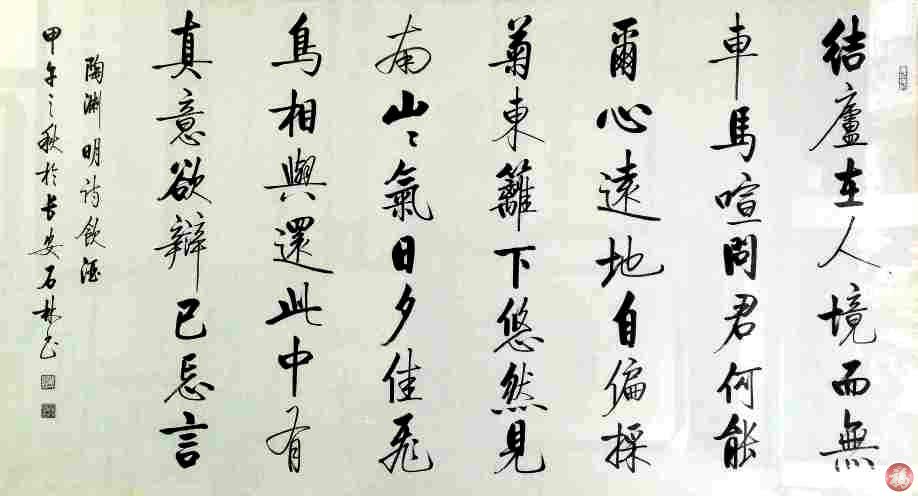 結廬在人境而無
車馬喧問君何能
爾心遠地自偏採
菊東籬下悠然見
南山々氣日夕佳飛
鳥相與還此中有
真意欲辯已忘言
陶淵明詩飲酒
甲午之秋於長安石林书
福